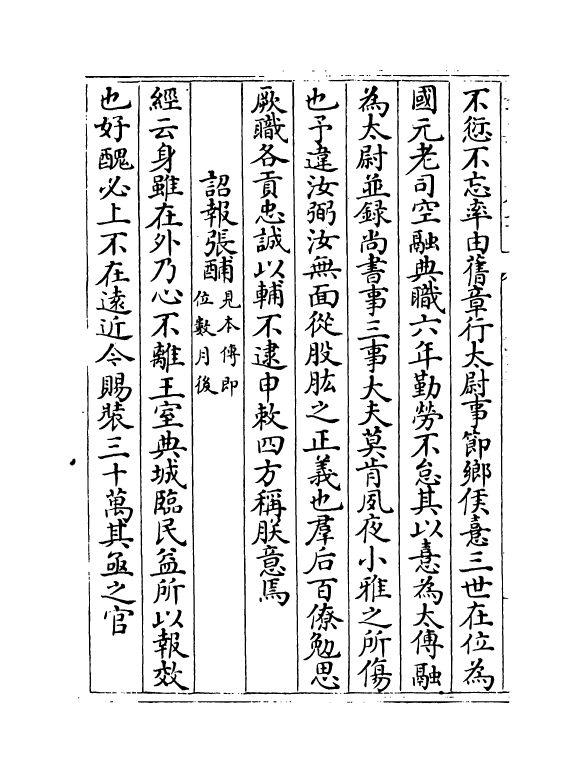 不愆不忘率由舊章行太尉事節鄉侯憙三世在位為
國元老司空融典職六年勤勞不怠其以憙為太傅融
為太尉並録尚書事三事大夫莫肯夙夜小雅之所傷
也予違汝弼汝無面從股肱之正義也羣后百僚勉思
厥職各貢忠誠以輔不逮申敕四方稱朕意焉
詔報張酺見本傳即位數月後
經云身雖在外乃心不離王室典城臨民益所以報效
也好醜必上不在遠近今賜裝三十萬其亟之官